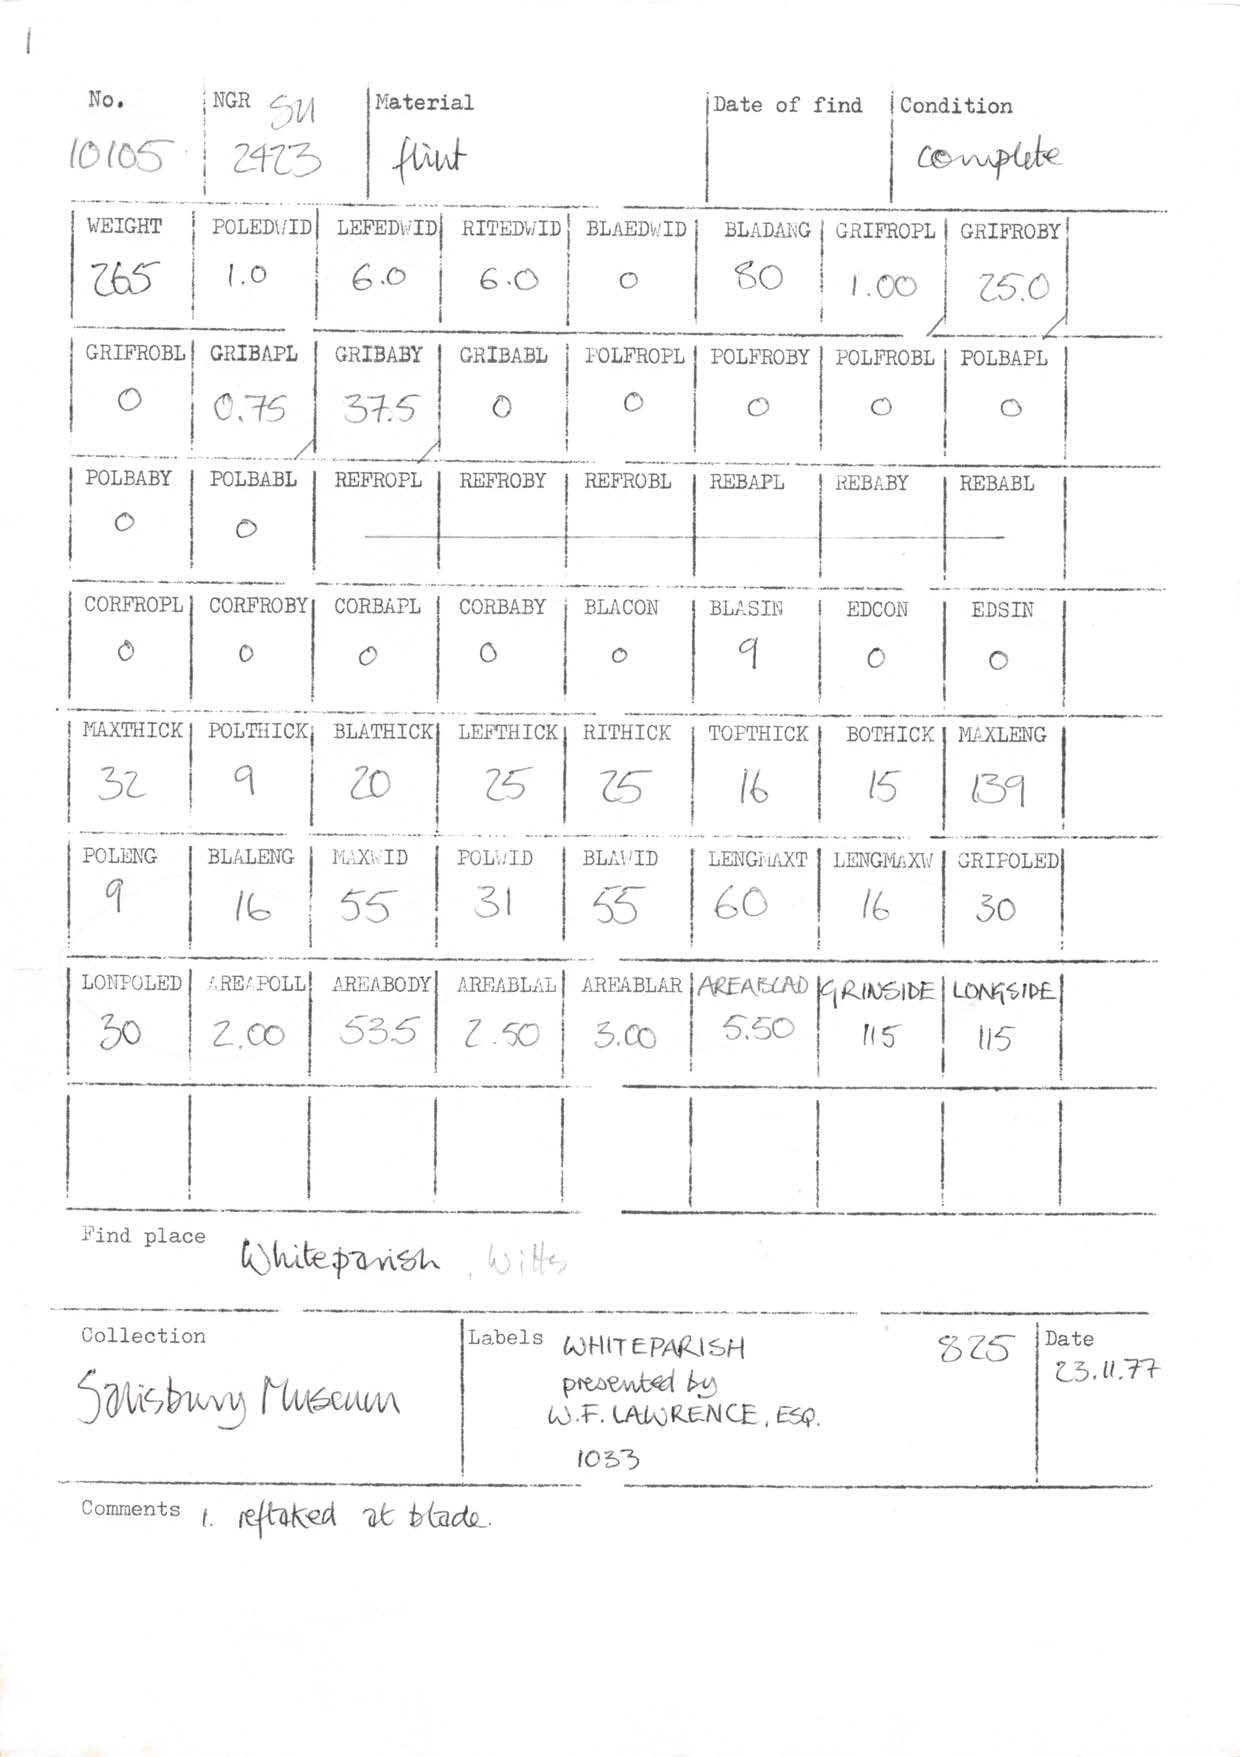 1
No. NGR SU Material Date of find Condition
10105 2423 flint complete
WEIGHT POLEDWID LEFEDWID RITEDWID BLAEDWID BLADANG GRIFROPL GRIFROBY
265 1.0 6.0 6.0 0 80 1.00 25.0
GRIFROBL GRIBAPL GRIBABY GRIBABL POLFROPL POLFROBY POLFROBL POLBAPL
0 0.75 37.5 0 0 0 0 0
POLBABY POLBABL REFROPL REFROBY REFROBL REBAPL REBABY REBABL
0 0
CORFROPL CORFROBY CORBAPL CORBABY BLACON BLASIN EDCON EDSIN
0 0 0 0 0 9 0 0
MAXTHICK POLTHICK BLATHICK LEFTHICK RITHICK TOPTHICK BOTHICK MAXLENG
32 9 20 25 25 16 15 139
POLENG BLALENG MAXWID POLWID BLAWID LENGMAXT LENGMAXW GRIPOLED
9 16 55 31 55 60 16 30
LONPOLED AREAPOLL AREABODY AREABLAL AREABLAR AREABLAD GRINSIDE LONGSIDE
30 2.00 53.5 2.50 3.00 5.50 115 115
Find place Whiteparish, Wilts
Collection Labels WHITEPARISH 825 Date
Salisbury Museum presented by 23.11.77
W.F. LAWRENCE, ESQ.
1033
Comments 1. reflaked at blade.